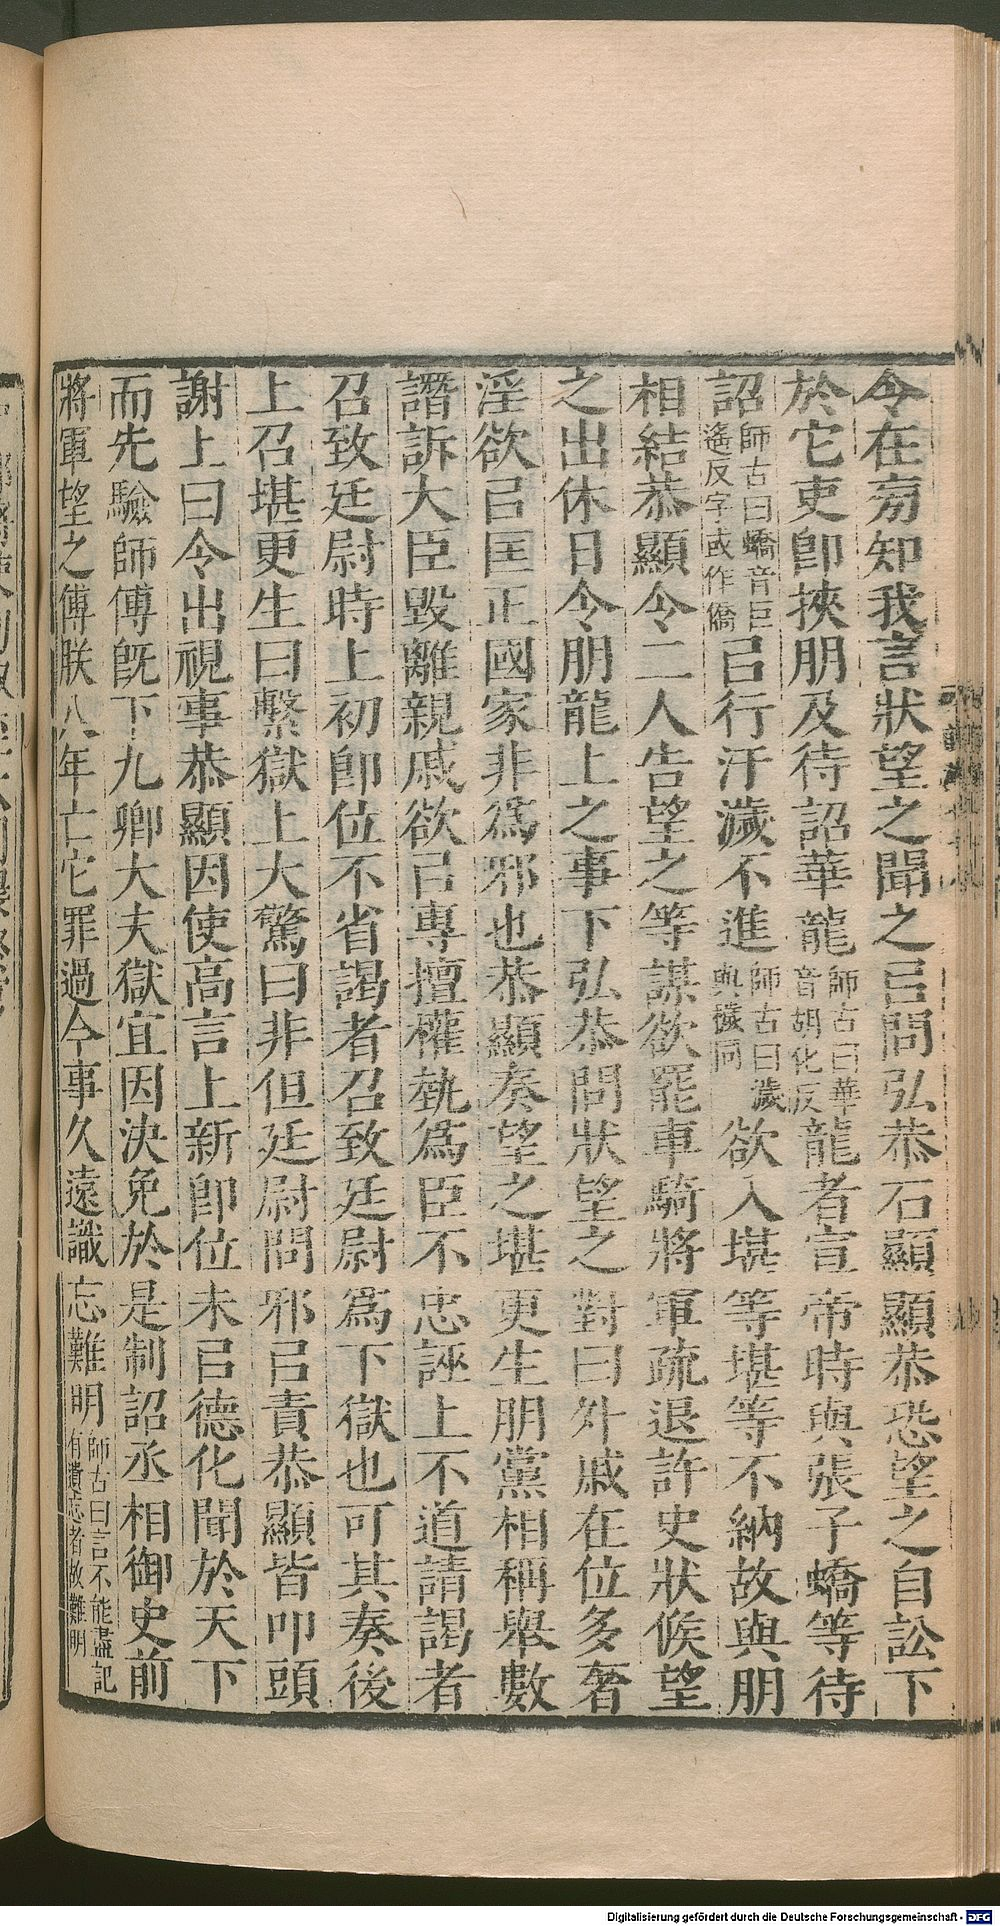 令在㫄知我言狀望之聞之㠯問弘恭石顯顯恭恐望之自訟下
於它吏卽挾朋及待詔華龍師古曰華音胡化反龍者宣帝時與張子蟜等待
詔師古曰蟜音巨遙反字或作僑㠯行汙濊不進師古曰濊與穢同欲入堪等堪等不納故與朋
相結恭顯令二人告望之等謀欲罷車騎將軍疏退許史狀候望
之出休日令朋龍上之事下弘恭問狀望之對曰外戚在位多奢
淫欲㠯匡正國家非爲邪也恭顯奏望之堪更生朋黨相稱舉數
譖訴大臣毀離親戚欲㠯專擅權埶爲臣不忠誣上不道請謁者
召致廷尉時上初卽位不省謁者召致廷尉爲下獄也可其奏後
上召堪更生曰繫獄上大驚曰非但廷尉問邪㠯責恭顯皆叩頭
謝上曰令出視事恭顯因使高言上新卽位未㠯德化聞於天下
而先驗師傅旣下九卿大夫獄宜因決免於是制詔丞相御史前
將軍望之傅朕八年亡它罪過今事久遠識忘難明師古曰言不能盡記有遺忘者故難明
Digitalisierung gefördert durch die Deutsche Forschungsgemeinschaft - DFG